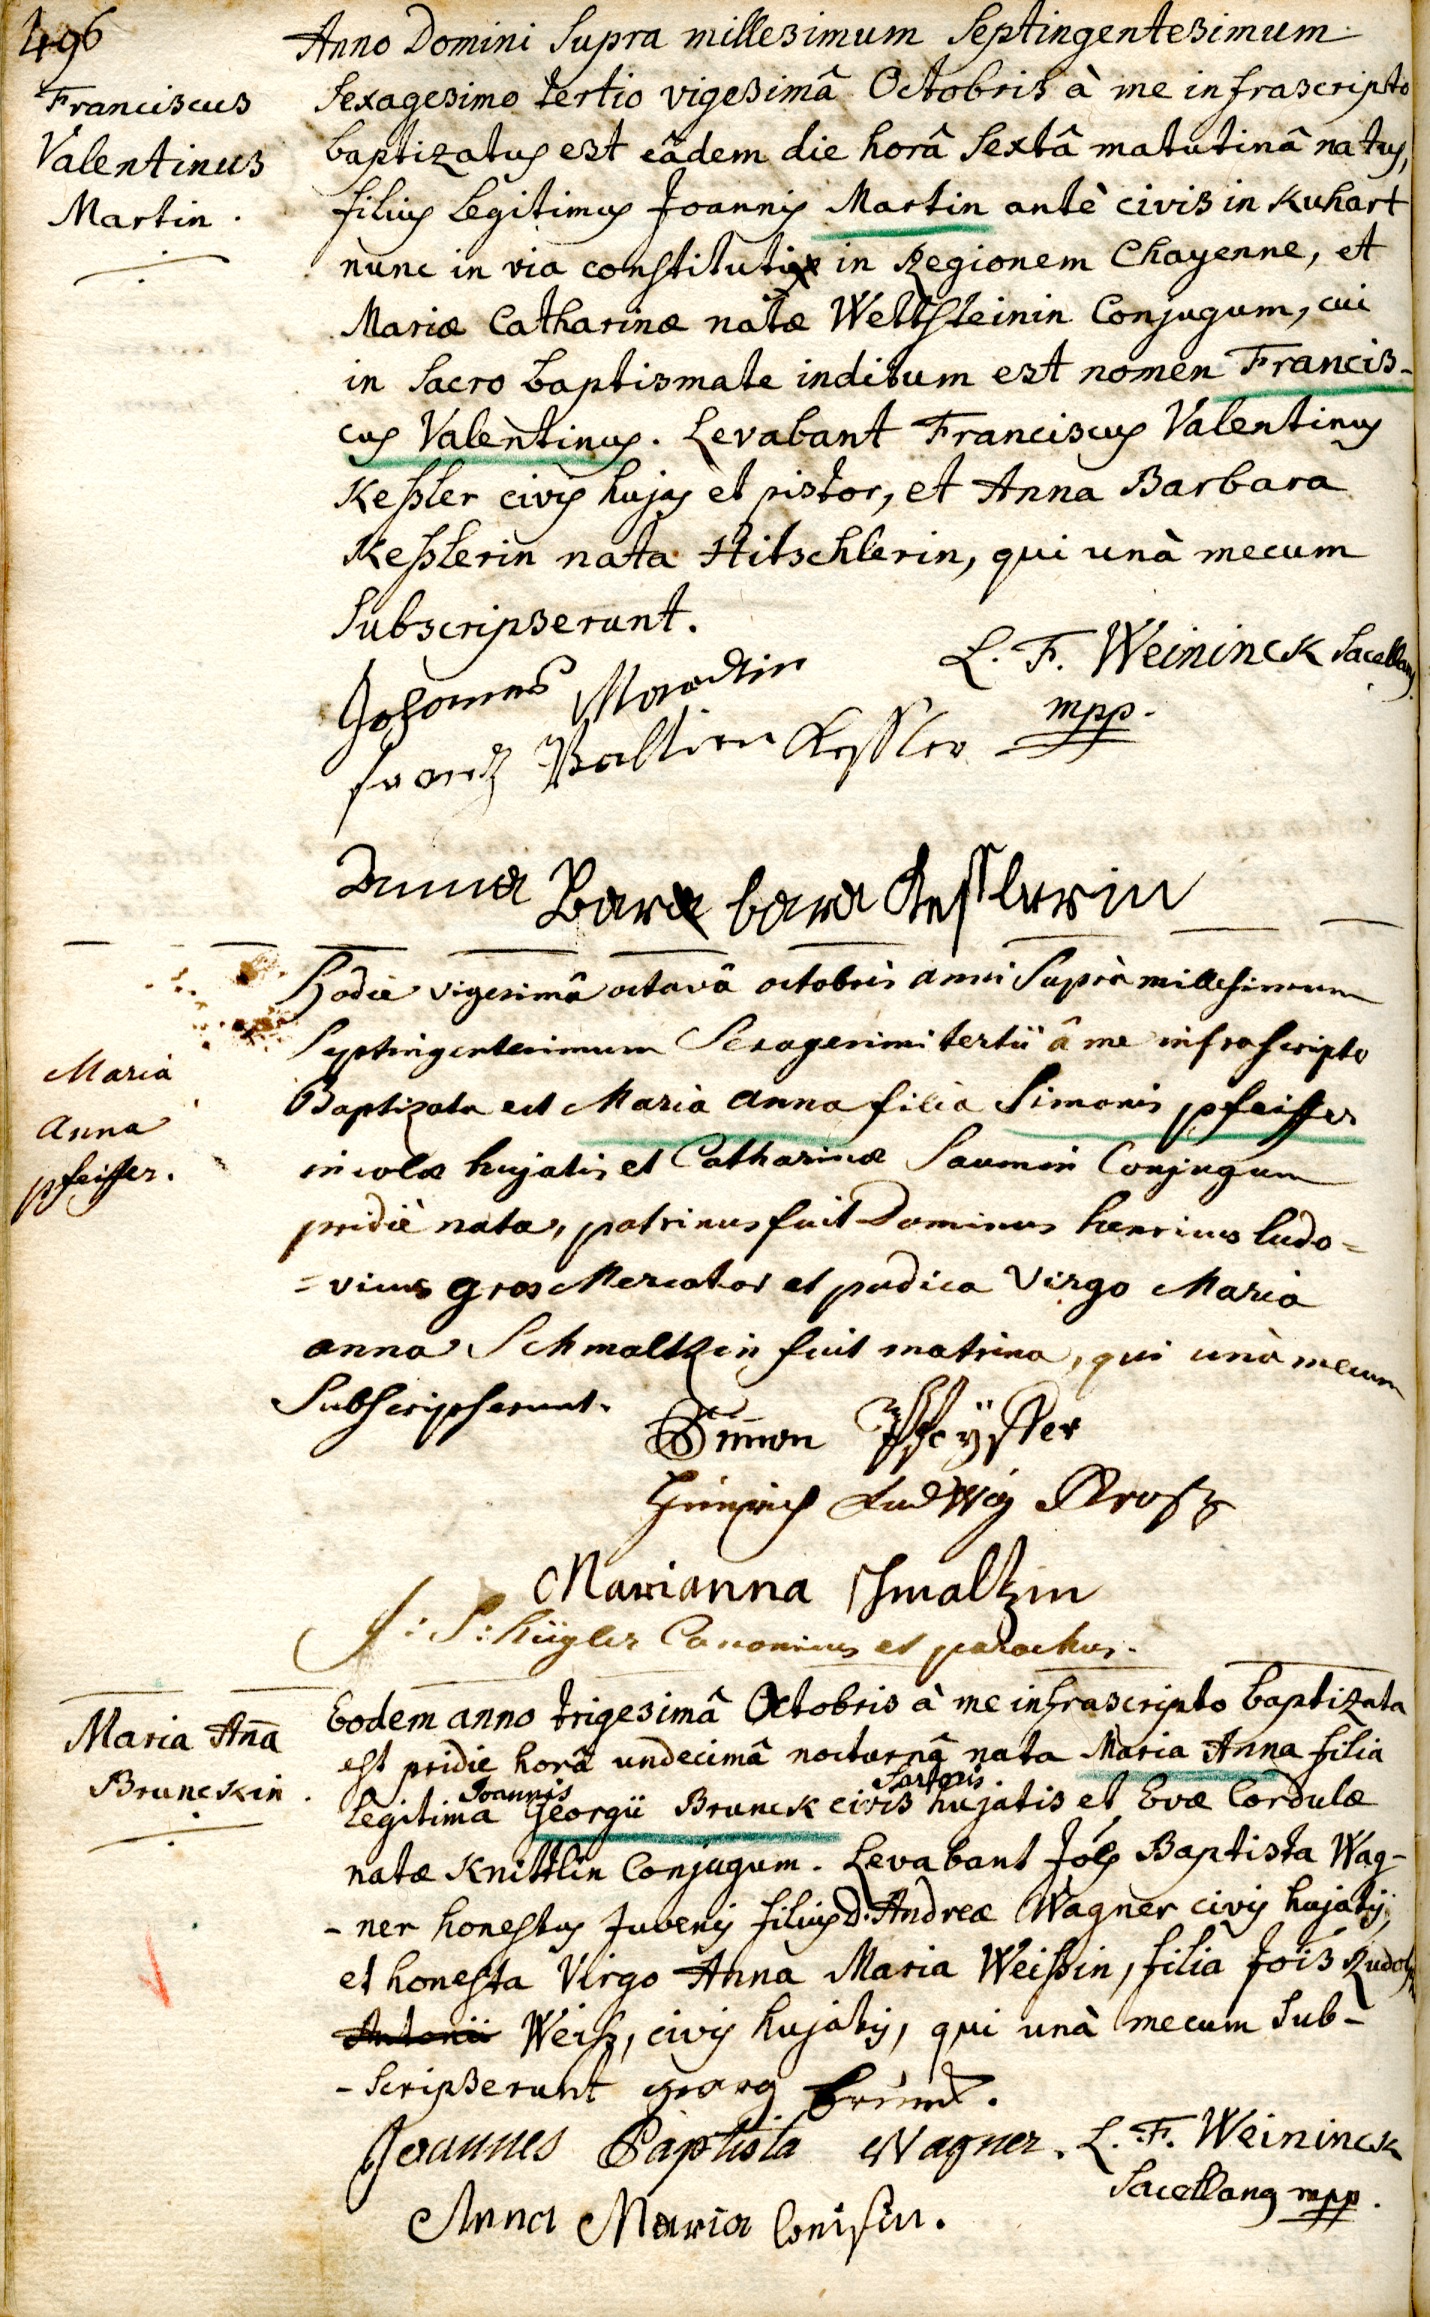 496
Franciscus
Valentinus
Martin.
Anno Domini supra millesimum septingentesimum
sexagesimo tertio vigesimâ Octobris à me infrascripto
baptizatus est eâdem die horâ sextâ matutinâ natus,
filius legitimus Joannis Martin antè civis in Kuhart
nunc in via constituti in Regionem Chayenne, et
Mariæ Catharinæ natæ Wettsteinin Conjugum, cui
in sacro baptismate inditum est nomen Francis-
cus Valentinus. Levabant Franciscus Valentinus
Keßler civis hujas et pistor, et Anna Barbara
Keßlerin nata Hitschlerin, qui unà mecum
subscripserunt.
L. F. Weininck Sacellanus
mpp.
Johannes Martin
frantz Valtien Kessler
Anna Barbara Kesslerin
Maria
Anna
pfeiffer.
Hodie vigesimâ octavâ octobris anni suprà millesimum
septingentesimum sexagesimi tertii â me infrascripto
Baptizata est Maria anna filia Simonis pfeiffer
incolæ hujatis et Catharinæ Saumin Conjugum
pridiè nata, patrinus fuit Dominus henricus ludo=
=vicus gros Mercator et pudica Virgo Maria
anna Schmaltzin fuit matrina, qui unà mecum
subscripserunt.
Simon Pfeÿffer
Heinrich Ludwig Grosz
Marianna schmaltzin
J: S: Kügler Canonicus et parochus.
Maria Ana̅
Brunckin.
Eodem anno trigesimâ Octobris à me infrascripto baptizata
est pridie horâ undecimâ nocturnâ nata Maria Anna filia
legitima Joannis Georgii Brunck civis sartoris hujatis et Evæ Cordulæ
natæ Knittlin Conjugum. Levabant Joēs Baptista Wag-
-ner honestus Juvenis filius d. Andreæ Wagner civis hujatis,
et honesta Virgo Anna Maria Weißin, filia Jois Rudolphi
Antonii Weiß, civis hujatis, qui unà mecum sub-
-scripserunt georg brunck.
Joannes Baptista Wagner. L. F. Weininck
Sacellanus mpp.
Anna Maria Weisin.